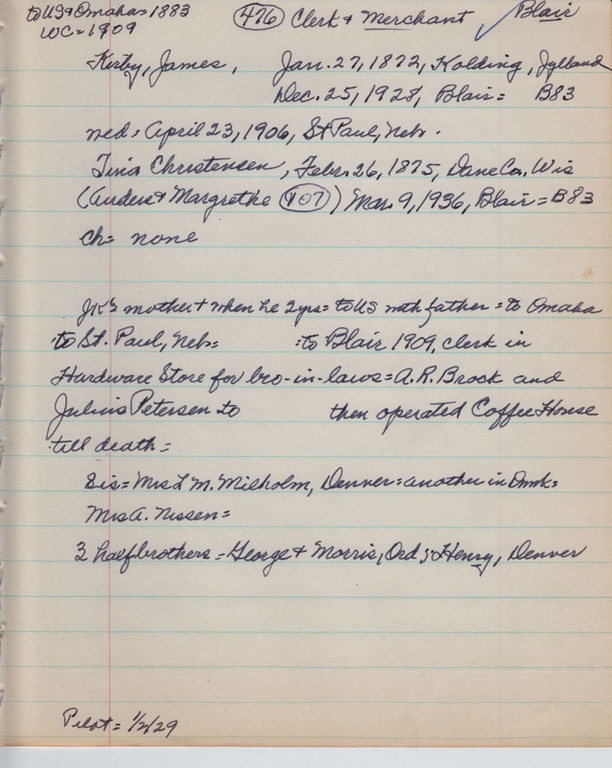 to US & Omaha = 1883 (476) Clerk & Merchant Blair
WC = 1909
Kirby, James, Jan. 27, 1872, Kolding, Jylland
Dec. 25, 1928, Blair = B83
med = April 23, 1906, St Paul, Nebr.
Tina Christensen, Febr. 26, 1875, Dane Co, Wis
(Anders & Margrethe (107)) Mar. 9, 1936, Blair = B83
Ch = none
JK's mother + when he 2 yrs = to US with father = to Omaha
to St. Paul, Neb = : to Blair 1909, clerk in
Hardware Store for bro-in-laws = A.R. Brock and
Julius Petersen to then operated Coffee House
till death =
Sis = Mrs L M. Milholm, Denver = another in Dmk =
Mrs A. Nissen =
3 half brothers = George & Morris, Ord ; & Henry, Denver
Pilot = 1/2/29